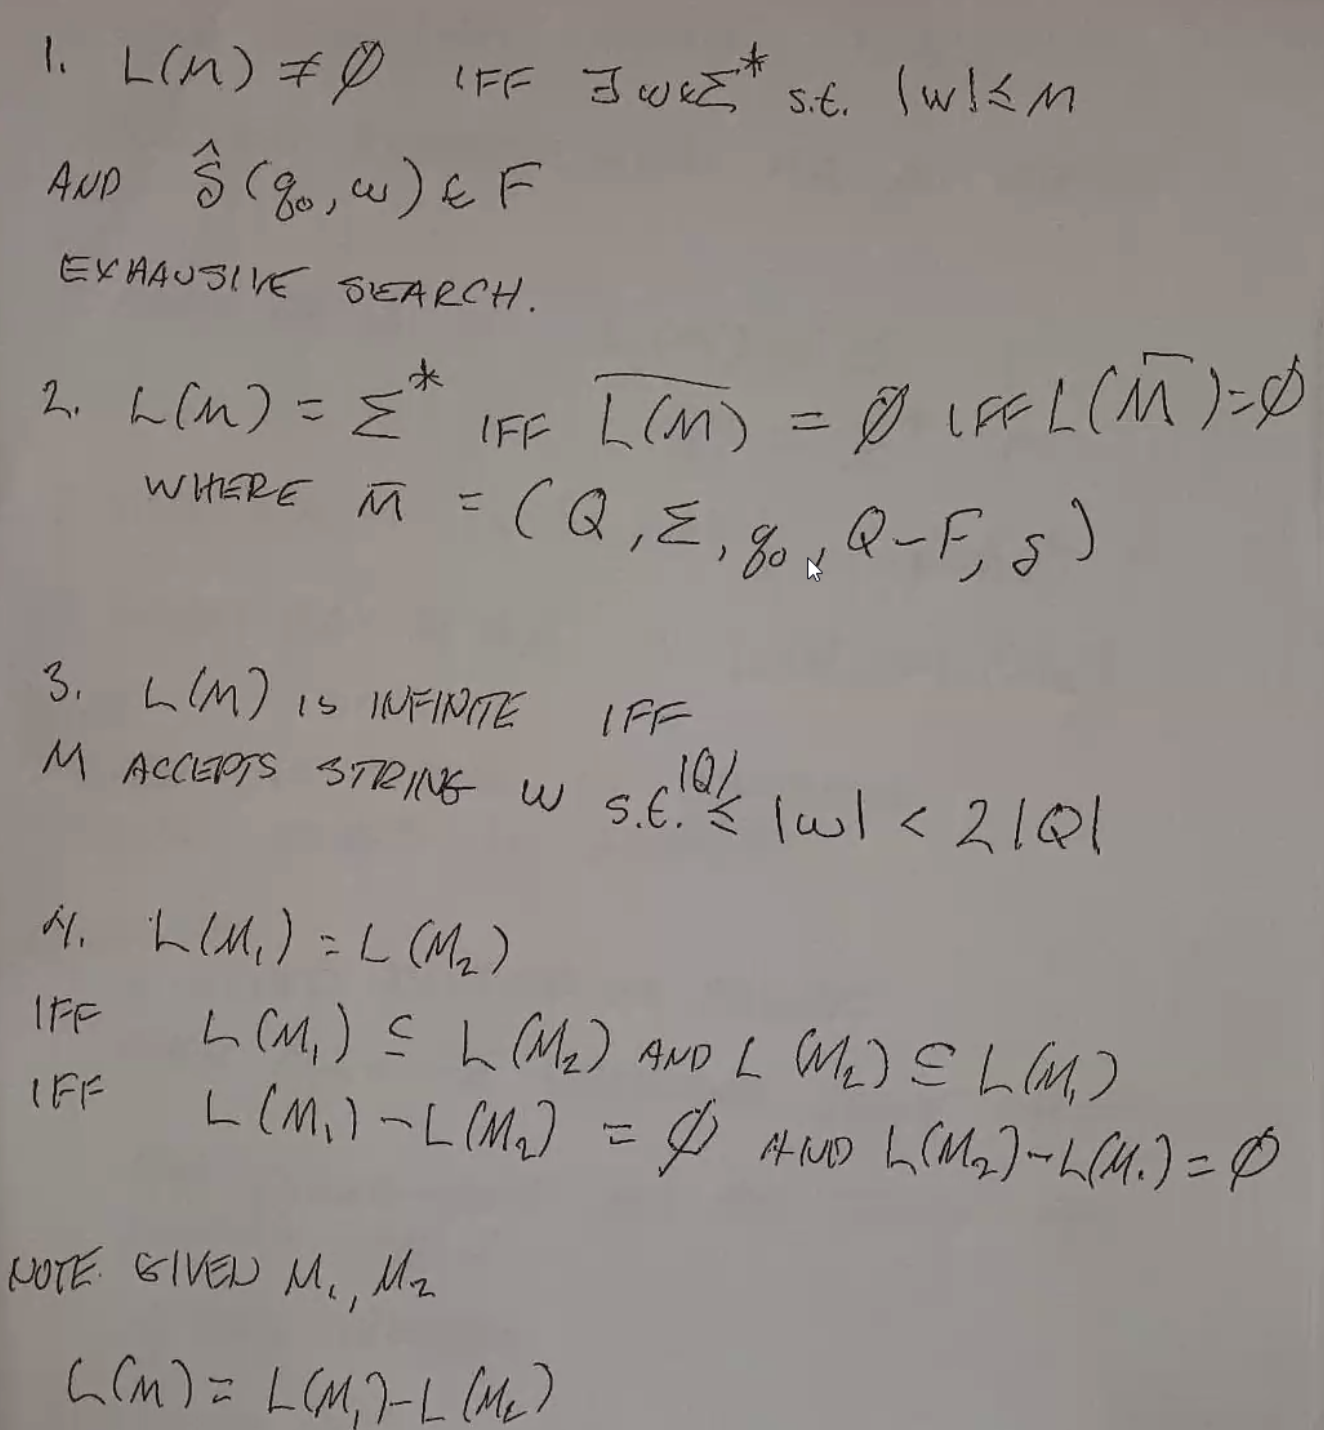 1. L(M) ≠ ∅ IFF ∃ w ∈ Σ* s.t. |w| ≤ M
AND δ̂(q₀, w) ∈ F
EXHAUSIVE SEARCH.
2. L(M) = Σ* IFF \overline{L(M)} = ∅ IFF L(M̅) = ∅
WHERE M̅ = (Q, Σ, q₀, Q-F, δ)
3. L(M) IS INFINITE IFF
M ACCEPTS STRING w s.t. |Q| ≤ |w| < 2|Q|
4. L(M₁) = L(M₂)
IFF L(M₁) ⊆ L(M₂) AND L(M₂) ⊆ L(M₁)
IFF L(M₁) - L(M₂) = ∅ AND L(M₂) - L(M₁) = ∅
NOTE GIVEN M₁, M₂
L(M) = L(M₁) - L(M₂)